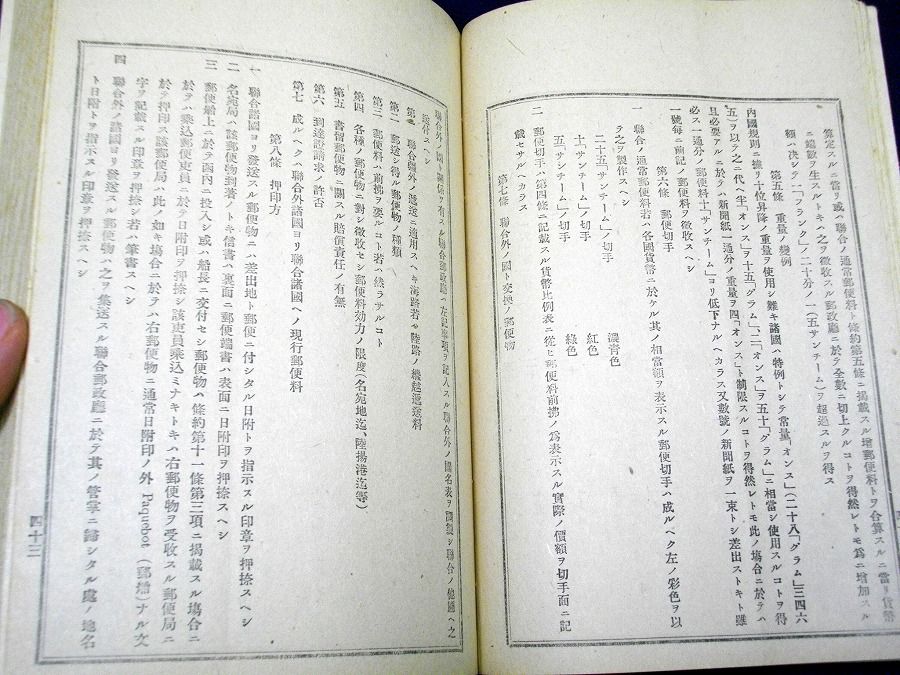 算定スルニ當リ或ハ聯合ノ通常郵便料ト條約第五條ニ揭載スル增郵便料トヲ合算スルニ當リ貨幣
ニ端數ヲ生スルトキハ之ヲ徵收スル郵政廳ニ於テ全數ニ切上クルコトヲ得然レトモ爲ニ增加スル
額ハ決シテ一「フランク」ノ二十分ノ一(五サンチーム)ヲ超過スルヲ得ス
第五條 重量ノ變例
內國規則ニ據リ十位昇降ノ重量ヲ使用シ難キ諸國ハ特例トシテ常量「オンス」(二十八「グラム」三四六
五)ヲ以テ之ニ代ヘ半「オンス」ヲ十五「グラム」二「オンス」ヲ五十「グラム」ニ相當シ使用スルコトヲ得
且必要アルニ於テハ新聞紙一通分ノ重量ヲ四「オンス」ト制限スルコトヲ得然レトモ此ノ場合ニ於テハ
必ス一通分ノ郵便料十「サンチーム」ヨリ低下ナルヘカラス又數號ノ新聞紙ヲ一束トシ差出ストキト雖
一號每ニ前記ノ郵便料ヲ徵收スヘシ
第六條 郵便切手
一 聯合ノ通常郵便料若ハ各國貨幣ニ於ケル其ノ相當額ヲ表示スル郵便切手ハ成ルヘク左ノ彩色ヲ以
テ之ヲ製作スヘシ
二十五「サンチーム」ノ切手 濃靑色
十「サンチーム」ノ切手 紅色
五「サンチーム」ノ切手 綠色
二 郵便切手ハ第四條ニ記載スル貨幣比例表ニ從ヒ郵便料前拂ノ爲表示スル實際ノ價額ヲ切手面ニ記
載セサルヘカラス
第七條 聯合外ノ國ト交換ノ郵便物
聯合外ノ諸國ト關係ヲ有スル聯合郵政廳ハ左記事項ヲ記入スル聯合外ノ國名表ヲ調製シ聯合ノ他國ヘ之
送付スヘシ
第一 聯合疆外ノ遞送ニ適用スヘキ海路若ハ陸路ノ繼越遞送料
第二 郵送シ得ル郵便物ノ種類
第三 郵便料ノ前拂ヲ要スルコト若ハ然ラサルコト
第四 各種ノ郵便物ニ對シ徵收セシ郵便料効力ノ限度(名宛地迄、陸揚港迄等)
第五 書留郵便物ニ關スル賠償責任ノ有無
第六 到達證請求ノ許否
第七 成ルヘクハ聯合外諸國ヨリ聯合諸國ヘノ現行郵便料
第八條 押印方
一 聯合諸國ヨリ發送スル郵便物ニハ差出地ト郵便ニ付シタル日附トヲ指示スル印章ヲ押捺スヘシ
二 名宛局ハ該郵便物到著ノトキ信書ハ裏面ニ郵便端書ハ表面ニ日附印ヲ押捺スヘシ
三 郵便船上ニ於テ函內ヘ投入シ或ハ船長ニ交付セシ郵便物ハ條約第十一條第三項ニ揭載スル場合ニ
於テハ乘込郵便吏員ニ於テ日附印ヲ押捺シ該吏員乘込ミナキトキハ右郵便物ヲ受收スル郵便局ニ
於テ押印ス該郵便局ハ此ノ如キ場合ニ於テハ右郵便物ニ通常日附印ノ外 Paquebot (郵船)ナル文
字ヲ記載スル印章ヲ押捺シ若ハ筆書スヘシ
四 聯合外ノ諸國ヨリ發送スル郵便物ハ之ヲ集送スル聯合郵政廳ニ於テ其ノ管掌ニ歸シタル處ノ地名
ト日附トヲ指示スル印章ヲ押捺スヘシ
四十三